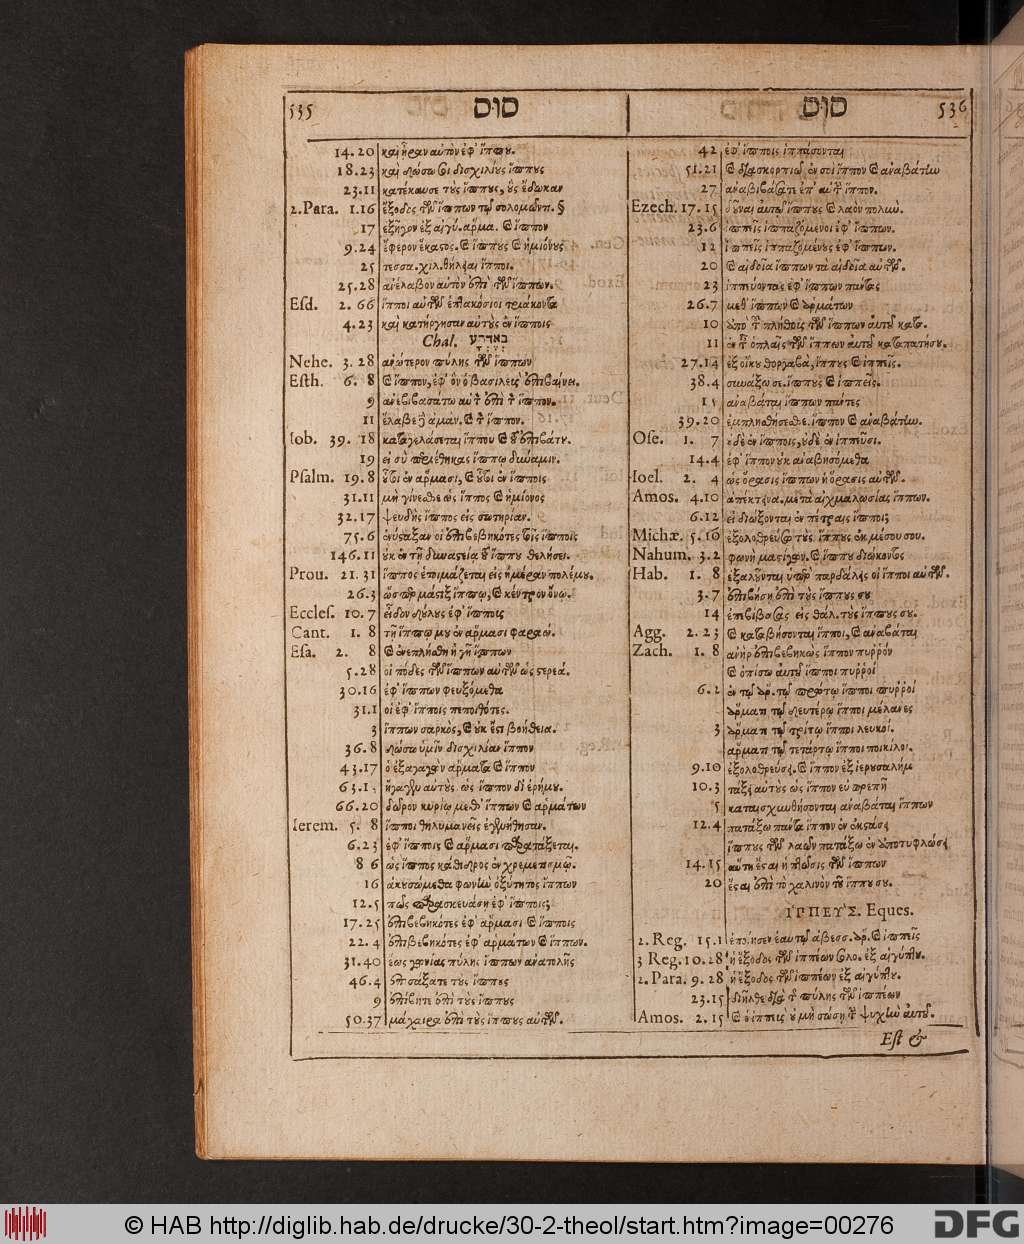 535 סוס
14.20 καὶ ἦραν αὐτὸν ἐφ' ἵππου.
18.23 καὶ δώσω σοι δισχιλίους ἵππους
23.11 κατέκαυσε τοὺς ἵππους, οὓς ἔδωκαν
2.Para. 1.16 ἔξοδος τῶν ἵππων τῷ σολομῶντ. §
17 ἐξῆγον ἐξ αἰγύ. ἅρμα. καὶ ἵππον
9.24 ἔφερον ἕκαστος. καὶ ἵππους καὶ ἡμιόνους
25 τεσσα. χιλ. θήλειαι ἵπποι.
25.28 ἀνέλαβον αὐτὸν ἐπὶ τῶν ἵππων.
Esd. 2.66 ἵπποι αὐτῶν ἑπτακόσιοι τριάκοντα
4.23 καὶ κατήργησαν αὐτοὺς ἐν ἵπποις
Chal. באדרע
Nehe. 3.28 ἀνώτερον πύλης τῶν ἵππων
Esth. 6.8 καὶ ἵππον, ἐφ' ὃν ὁ βασιλεὺς ἐπιβαίνει.
9 ἀνεβιβασάτω αὐτὸν ἐπὶ τὸν ἵππον.
11 ἔλαβε δὲ ἀμὰν. καὶ τὸν ἵππον.
Iob. 39.18 καταγελάσεται ἵππου καὶ τοῦ ἐπιβάτου.
19 εἰ σὺ περιέθηκας ἵππῳ δύναμιν.
Psalm. 19.8 οὗτοι ἐν ἅρμασι, καὶ οὗτοι ἐν ἵπποις
31.11 μὴ γίνεσθε ὡς ἵππος καὶ ἡμίονος
32.17 ψευδὴς ἵππος εἰς σωτηρίαν.
75.6 ἐνύσταξαν οἱ ἐπιβεβηκότες τοῖς ἵπποις
146.11 οὐκ ἐν τῇ δυναστείᾳ τοῦ ἵππου θελήσει.
Prou. 21.31 ἵππος ἑτοιμάζεται εἰς ἡμέραν πολέμου.
26.3 ὥσπερ μάστιξ ἵππῳ, καὶ κέντρον ὄνῳ.
Eccles. 10.7 εἶδον δούλους ἐφ' ἵπποις
Cant. 1.8 τῇ ἵππῳ μου ἐν ἅρμασι φαραώ.
Esa. 2.8 καὶ ἐνεπλήσθη ἡ γῆ ἵππων
5.28 οἱ πόδες τῶν ἵππων αὐτῶν ὡς στερεά.
30.16 ἐφ' ἵππων φευξόμεθα
31.1 οἱ ἐφ' ἵπποις πεποιθότες.
3 ἵππων σαρκὸς, καὶ οὐκ ἔστι βοήθεια.
36.8 δώσω ὑμῖν δισχιλίαν ἵππον
43.17 ὁ ἐξαγαγὼν ἅρματα καὶ ἵππον
63.1 ἤγαγεν αὐτοὺς. ὡς ἵππον δι' ἐρήμου.
66.20 δῶρον κυρίῳ μεθ' ἵππων καὶ ἁρμάτων
Ierem. 5.8 ἵπποι θηλυμανεῖς ἐγενήθησαν.
6.23 ἐφ' ἵπποις καὶ ἅρμασι παρατάξεται.
8 6 ὡς ἵππος κάθιδρος ἐν χρεμετισμῷ.
16 ἀκουσόμεθα φωνὴν ὀξύτητος ἵππων
12.5 πῶς παρασκευάσῃ ἐφ' ἵπποις;
17.25 ἐπιβεβηκότες ἐφ' ἅρμασι καὶ ἵπποις
22.4 ἐπιβεβηκότες ἐφ' ἁρμάτων καὶ ἵππων.
31.40 ἕως γωνίας πύλης ἵππων ἀνατολῆς
46.4 ἐπισάξατε τοὺς ἵππους
9 ἐπίβητε ἐπὶ τοὺς ἵππους
50.37 μάχαιρα ἐπὶ τοὺς ἵππους αὐτῶν.
סוס 536
42 ἐφ' ἵπποις ἱππάσονται
51.21 καὶ διασκορπιῶ ἐν σοὶ ἵππον καὶ ἀναβάτην
27 ἀναβιβάσατε ἐπ' αὐτὴν ἵππον.
Ezech. 17.15 δοῦναι αὐτῷ ἵππους καὶ λαὸν πολύν.
23.6 ἱππεῖς ἱππαζόμενοι ἐφ' ἵππων.
12 ἱππεῖς ἱππαζομένους ἐφ' ἵππων.
20 καὶ αἰδοῖα ἵππων τὰ αἰδοῖα αὐτῶν.
23 ἱππεύοντας ἐφ' ἵππων πάντας
26.7 μεθ' ἵππων καὶ ἁρμάτων
10 ἀπὸ τοῦ πλήθους τῶν ἵππων αὐτοῦ κατα.
11 ἐν ταῖς ὁπλαῖς τῶν ἵππων αὐτοῦ καταπατήσου.
27.14 ἐξ οἴκου θοργαβὰ, ἵππους καὶ ἱππεῖς.
38.4 συνάξω σε. ἵππους καὶ ἱππεῖς.
15 ἀναβάται ἵππων πάντες
39.20 ἐμπλησθήσεσθε. ἵππον καὶ ἀναβάτην.
Ose. 1.7 οὐδὲ ἐν ἵπποις, οὐδὲ ἐν ἱππεῦσι.
14.4 ἐφ' ἵππον οὐκ ἀναβησόμεθα
Ioel. 2.4 ὡς ὅρασις ἵππων ἡ ὅρασις αὐτῶν.
Amos. 4.10 ἀπέκτεινα. μετὰ αἰχμαλωσίας ἵππων.
6.12 εἰ διώξονται ἐν πέτραις ἵπποι;
Michæ. 5.10 ἐξολοθρεύσω τοὺς ἵππους ἐκ μέσου σου.
Nahum. 3.2 φωνὴ μαστίγων. καὶ ἵππου διώκοντος
Hab. 1.8 ἐξαλοῦνται ὑπὲρ παρδάλεις οἱ ἵπποι αὐτῶν.
3.7 ἐπιβήσῃ ἐπὶ τοὺς ἵππους σου
14 ἐπεβίβασας εἰς θάλ. τοὺς ἵππους σου.
Agg. 2.23 καὶ καταβήσονται ἵπποι, καὶ ἀναβάται
Zach. 1.8 ἀνὴρ ἐπιβεβηκὼς ἵππον πυρρόν
καὶ ὀπίσω αὐτοῦ ἵπποι πυρροί
6.2 ἐν τῷ ἅρ. τῷ πρώτῳ ἵπποι πυρροί
ἅρματι τῷ δευτέρῳ ἵπποι μέλανες
3 ἅρματι τῷ τρίτῳ ἵπποι λευκοί.
ἅρματι τῷ τετάρτῳ ἵπποι ποικίλοι.
9.10 ἐξολοθρεύσει. καὶ ἵππον ἐξ ἱερουσαλήμ
10.3 τάξει αὐτοὺς ὡς ἵππον εὐπρεπῆ
5 καταισχυνθήσονται ἀναβάται ἵππων
12.4 πατάξω πάντα ἵππον ἐν ἐκστάσει
ἵππους τῶν λαῶν πατάξω ἐν ἀποτυφλώσει
14.15 αὕτη ἔσται ἡ πτῶσις τῶν ἵππων
20 ἔσται ἐπὶ τὸ χαλινὸν τοῦ ἵππου σου.
ἹΠΠΕΥ'Σ. Eques.
2. Reg. 15.1 ἐποίησεν ἑαυτῷ ἀβεσσ. ἅρ. καὶ ἱππεῖς
3 Reg. 10.28 ἡ ἔξοδος τῶν ἱππέων σολο. ἐξ αἰγύπτου.
2. Para. 9.28 ἡ ἔξοδος τῶν ἱππέων ἐξ αἰγύπτου.
23.15 διῆλθε διὰ τῆς πύλης τῶν ἱππέων
Amos. 2.15 καὶ ὁ ἱππεὺς οὐ μὴ σώσῃ τὴν ψυχὴν αὐτοῦ.
Est &
© HAB http://diglib.hab.de/drucke/30-2-theol/start.htm?image=00276
DFG